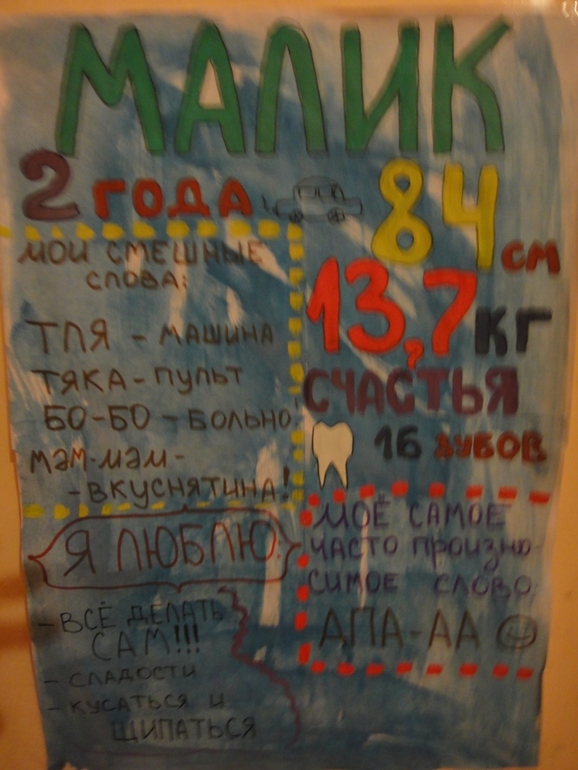 МАЛИК
2 ГОДА
84 СМ
МОИ СМЕШНЫЕ
СЛОВА:
ТПЯ - МАШИНА
ТЯКА - ПУЛЬТ
БО-БО - БОЛЬНО!
МӘМ-МӘМ -
- ВКУСНЯТИНА!
13,7 КГ
СЧАСТЬЯ
16 ЗУБОВ
МОЁ САМОЕ
ЧАСТО ПРОИЗНО-
СИМОЕ СЛОВО:
АПА-АА
Я ЛЮБЛЮ:
- ВСЁ ДЕЛАТЬ
САМ!!!
- СЛАДОСТИ
- КУСАТЬСЯ И
ЩИПАТЬСЯ